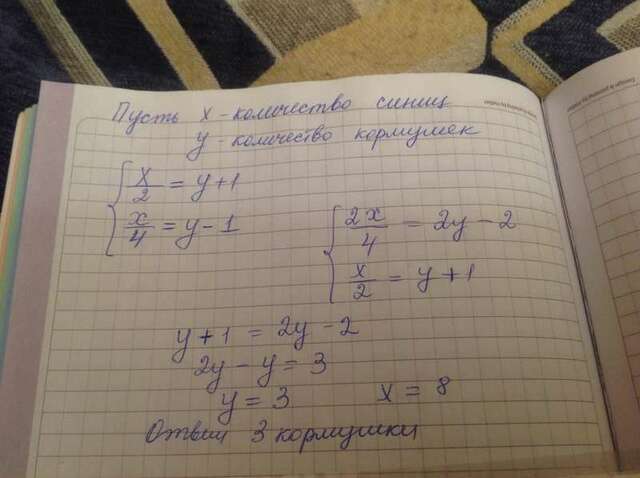 Пусть x - количество синиц
y - количество кормушек
x/2 = y+1
x/4 = y-1
2x/4 = 2y-2
x/2 = y+1
y+1 = 2y-2
2y-y=3
y=3 x=8
Ответ 3 кормушки